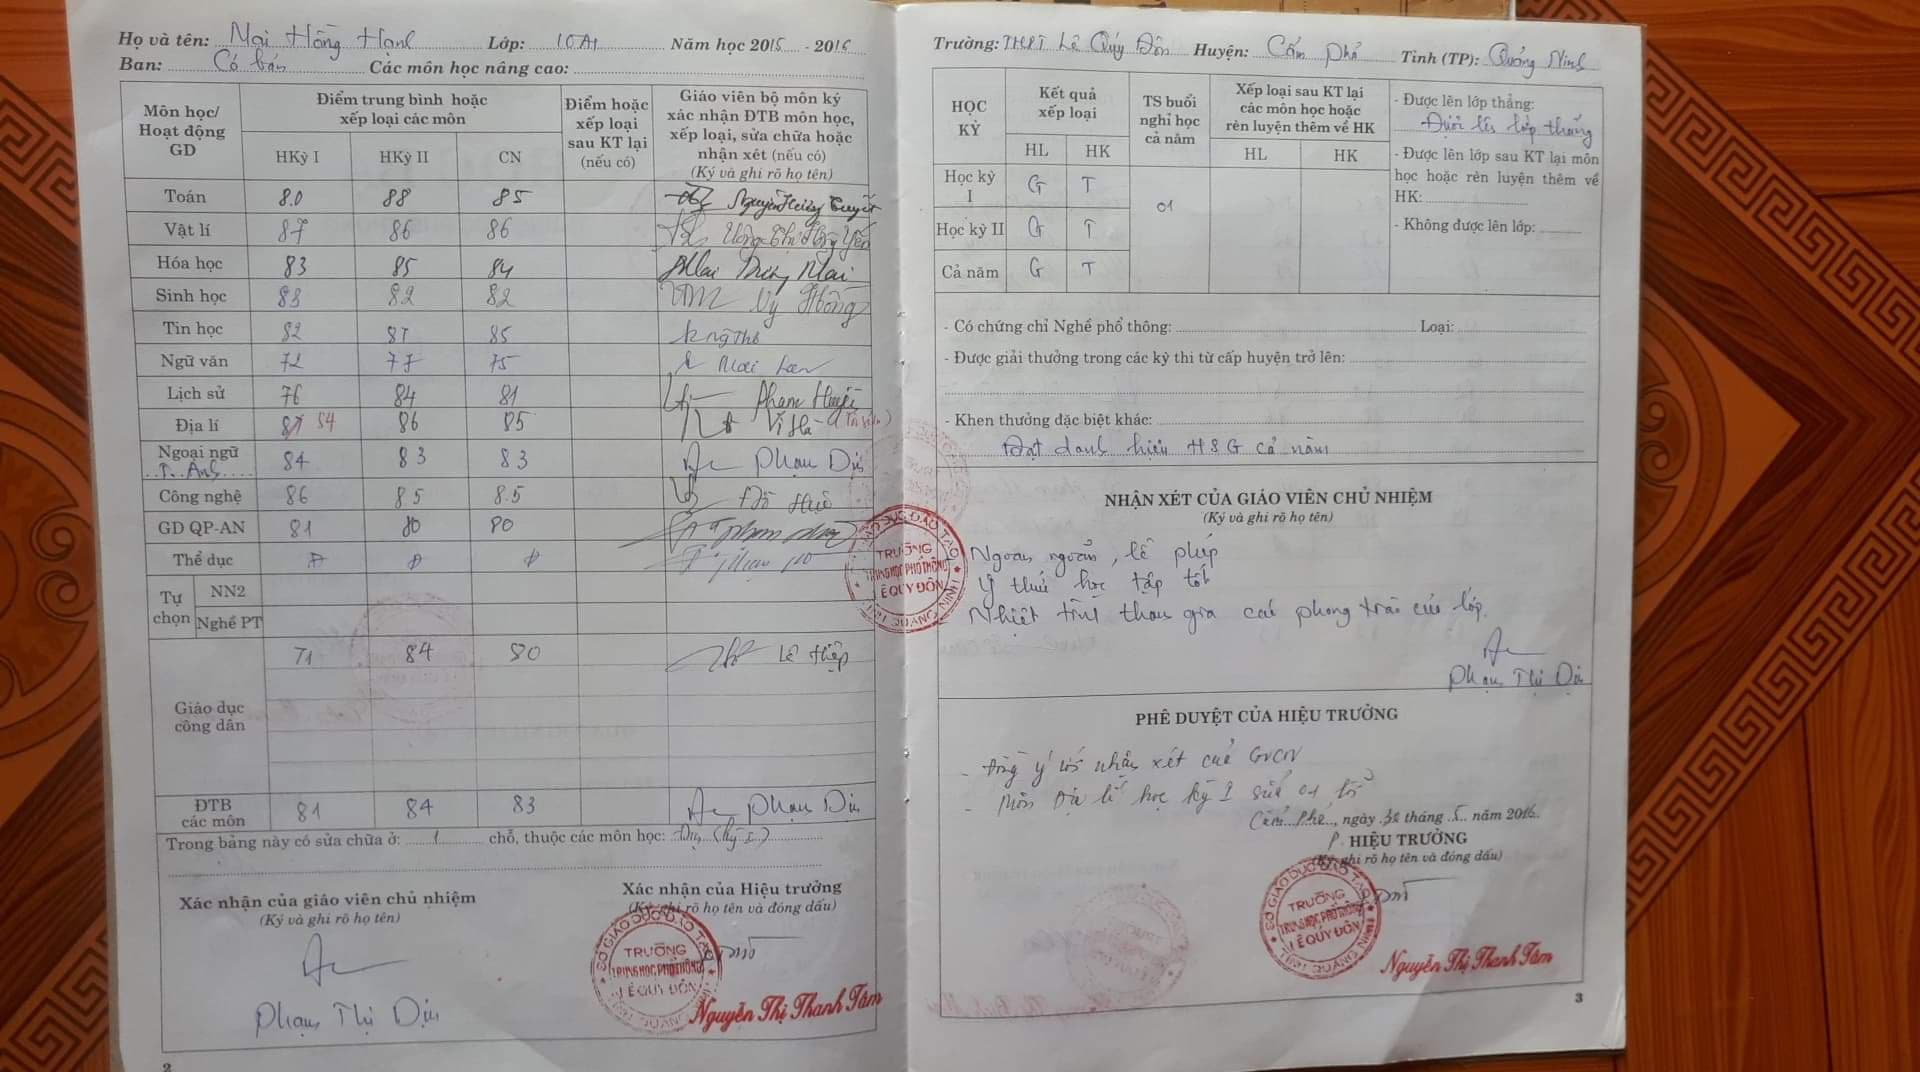 Họ và tên: Mai Hồng Hạnh Lớp: 10A1 Năm học 2015 - 2016
Ban: Cơ bản Các môn học nâng cao:
Môn học/ Hoạt động GD
Điểm trung bình hoặc xếp loại các môn
HKỳ I HKỳ II CN
Điểm hoặc xếp loại sau KT lại (nếu có)
Giáo viên bộ môn ký xác nhận ĐTB môn học, xếp loại, sửa chữa hoặc nhận xét (nếu có)
(Ký và ghi rõ họ tên)
Toán 8.0 88 85
Vật lí 87 86 86
Hóa học 83 85 84 Mai
Sinh học 83 82 82 Vy Hồng
Tin học 82 87 85
Ngữ văn 72 77 75 Mai Lan
Lịch sử 76 84 81 Phạm Huyền
Địa lí 84 86 85 Vi Hà
Ngoại ngữ 84 83 83 Phạm Dịu
T. Anh
Công nghệ 86 85 8.5 Đỗ Huệ
GD QP-AN 81 80 80
Thể dục Đ Đ Đ
Tự chọn
NN2
Nghề PT
Giáo dục công dân 71 84 80 Lê Hiệp
ĐTB các môn 81 84 83 Phạm Dịu
Trong bảng này có sửa chữa ở: 1 chỗ, thuộc các môn học: Địa (kỳ I)
Xác nhận của giáo viên chủ nhiệm
(Ký và ghi rõ họ tên)
Phạm Thị Dịu
Xác nhận của Hiệu trưởng
(Ký, ghi rõ họ tên và đóng dấu)
SỞ GIÁO DỤC ĐÀO TẠO
TRƯỜNG
TRUNG HỌC PHỔ THÔNG
LÊ QUÝ ĐÔN
TỈNH QUẢNG NINH
Nguyễn Thị Thanh Tâm
2
Trường: THPT Lê Quý Đôn Huyện: Cẩm Phả Tỉnh (TP): Quảng Ninh
HỌC KỲ
Kết quả xếp loại
HL HK
TS buổi nghỉ học cả năm
Xếp loại sau KT lại các môn học hoặc rèn luyện thêm về HK
HL HK
Học kỳ I G T
01
Học kỳ II G T
Cả năm G T
- Được lên lớp thẳng:
Được lên lớp thẳng
- Được lên lớp sau KT lại môn
học hoặc rèn luyện thêm về
HK:
- Không được lên lớp:
- Có chứng chỉ Nghề phổ thông: Loại:
- Được giải thưởng trong các kỳ thi từ cấp huyện trở lên:
- Khen thưởng đặc biệt khác:
Đạt danh hiệu HSG cả năm
NHẬN XÉT CỦA GIÁO VIÊN CHỦ NHIỆM
(Ký và ghi rõ họ tên)
Ngoan ngoãn, lễ phép
Ý thức học tập tốt
Nhiệt tình tham gia các phong trào của lớp.
Phạm Thị Dịu
SỞ GIÁO DỤC ĐÀO TẠO
TRƯỜNG
TRUNG HỌC PHỔ THÔNG
LÊ QUÝ ĐÔN
TỈNH QUẢNG NINH
PHÊ DUYỆT CỦA HIỆU TRƯỞNG
- Đồng ý với nhận xét của GVCN
- Môn Địa lí học kỳ I sửa 01 lỗi
Cẩm Phả, ngày tháng 5 năm 2016
P. HIỆU TRƯỞNG
(Ký, ghi rõ họ tên và đóng dấu)
SỞ GIÁO DỤC ĐÀO TẠO
TRƯỜNG
TRUNG HỌC PHỔ THÔNG
LÊ QUÝ ĐÔN
TỈNH QUẢNG NINH
Nguyễn Thị Thanh Tâm
3